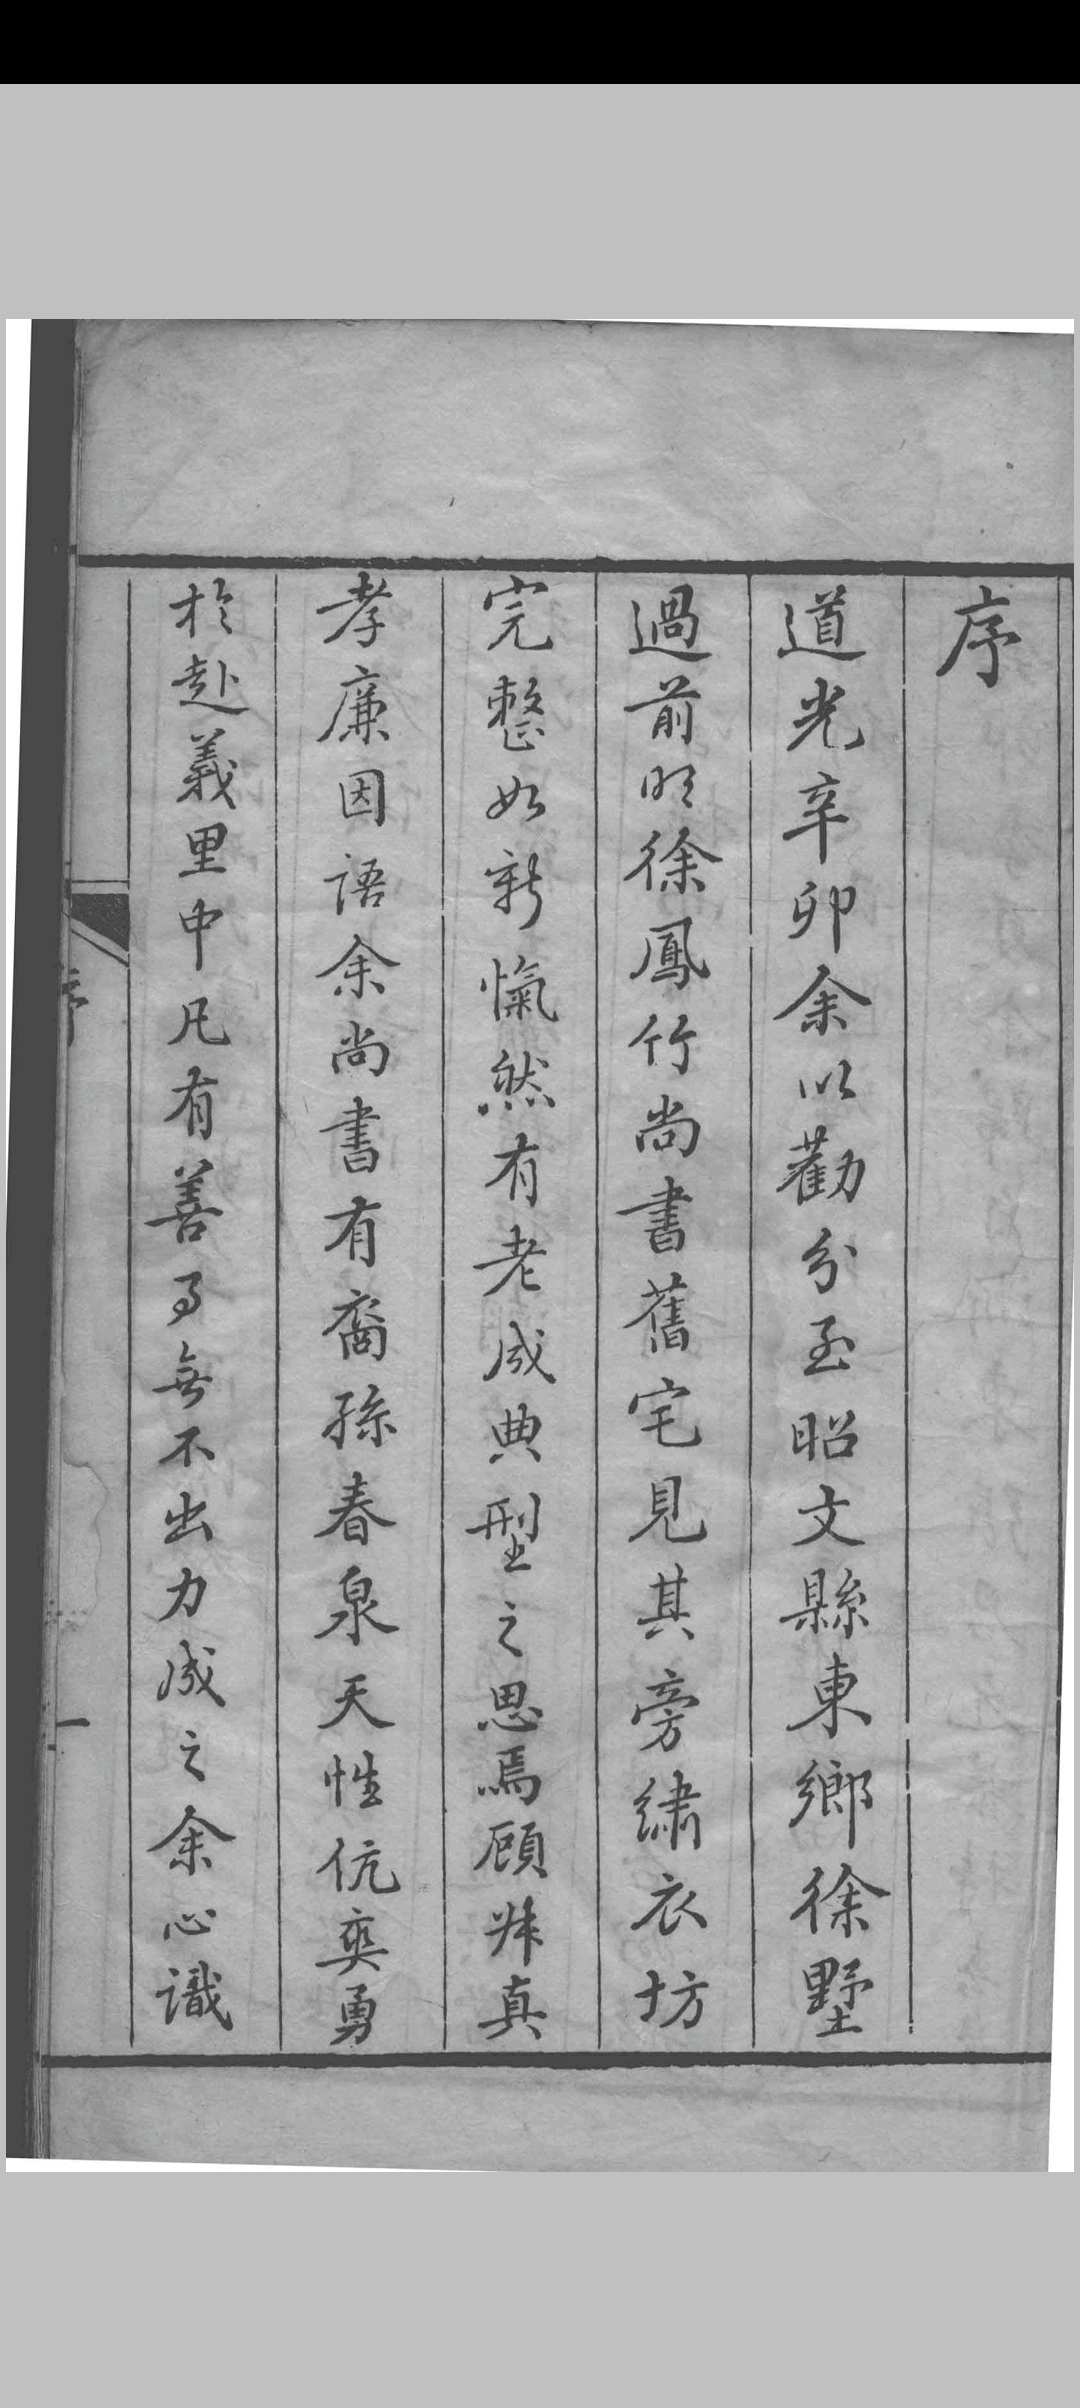 序
道光辛卯余以勸分至昭文縣東鄉徐墅
過前明徐鳳竹尚書舊宅見其旁繡衣坊
完整如新愾然有老成典型之思焉顧竝真
孝廉因語余尚書有裔孫春泉天性伉爽勇
於赴義里中凡有善事無不出力成之余心識
序
一